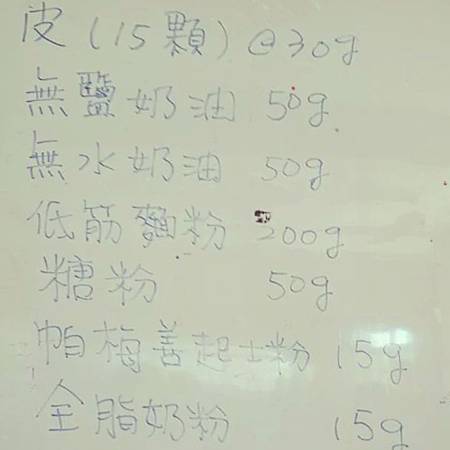 皮(15顆)@30g
無鹽奶油 50g
無水奶油 50g
低筋麵粉 200g
糖粉 50g
帕梅善起士粉 15g
全脂奶粉 15g